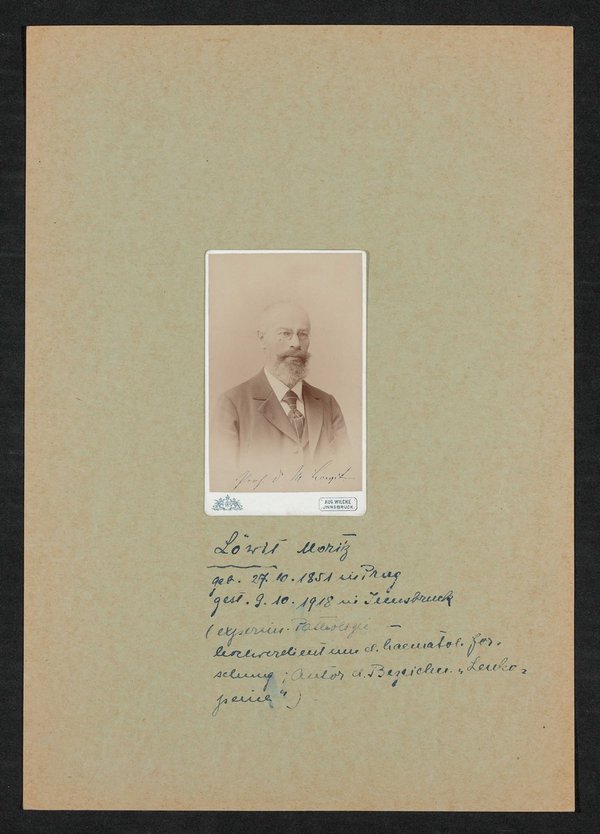 Prof. Dr M. Löwit
AUG. WILCKE
INNSBRUCK
Löwit Moritz
geb. 27. 10. 1851 in Prag
gest. 9. 10. 1918 in Innsbruck
(experim. Pathologie
hochverdient um d. haematol. For-
schung; Autor d. Bezeichn. „Leuko-
penie")